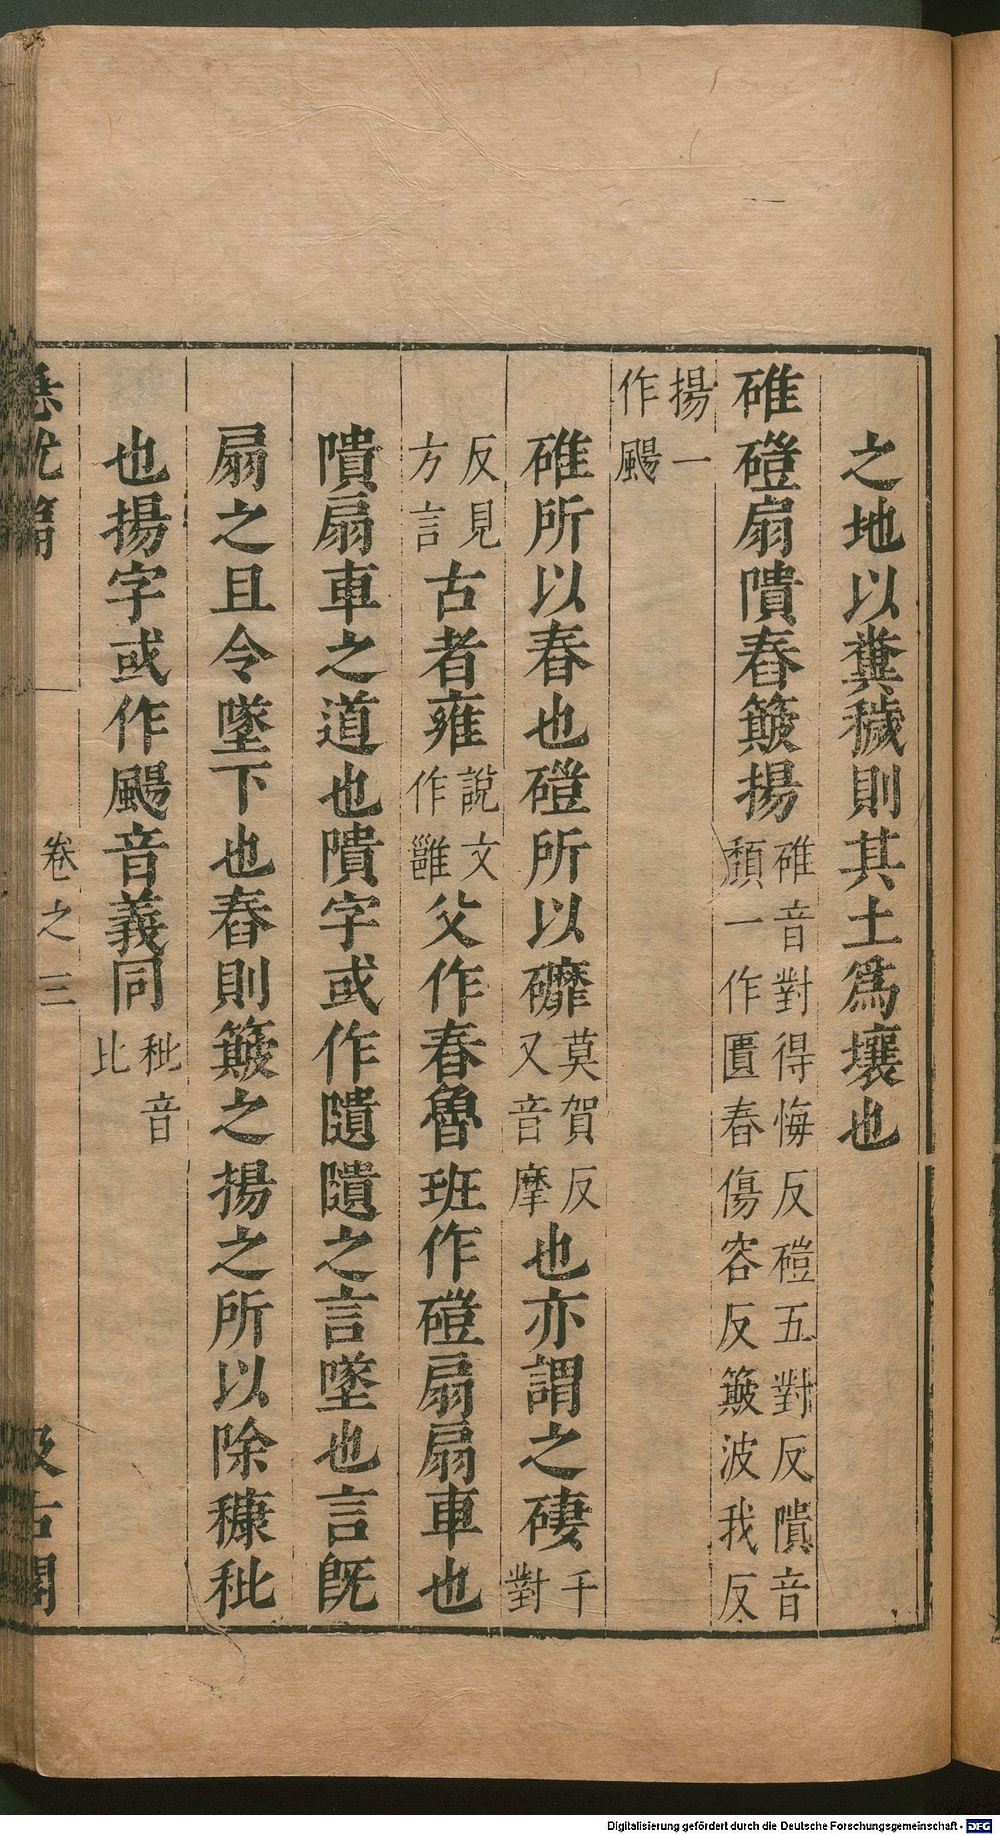 之地以糞穢則其土爲壤也
碓磑扇隤舂簸揚碓音對得悔反磑五對反隤音
頽一作匱舂傷容反簸波我反
揚一
作颺
碓所以舂也磑所以䃺莫賀反
又音摩也亦謂之䃀千
對
反見
方言古者雍說文
作雝父作舂魯班作磑扇扇車也
隤扇車之道也隤字或作隫隫之言墜也言旣
扇之且令墜下也舂則簸之揚之所以除穅秕
也揚字或作颺音義同秕音
比
急就篇
卷之三
汲古閣
Digitalisierung gefördert durch die Deutsche Forschungsgemeinschaft - DFG